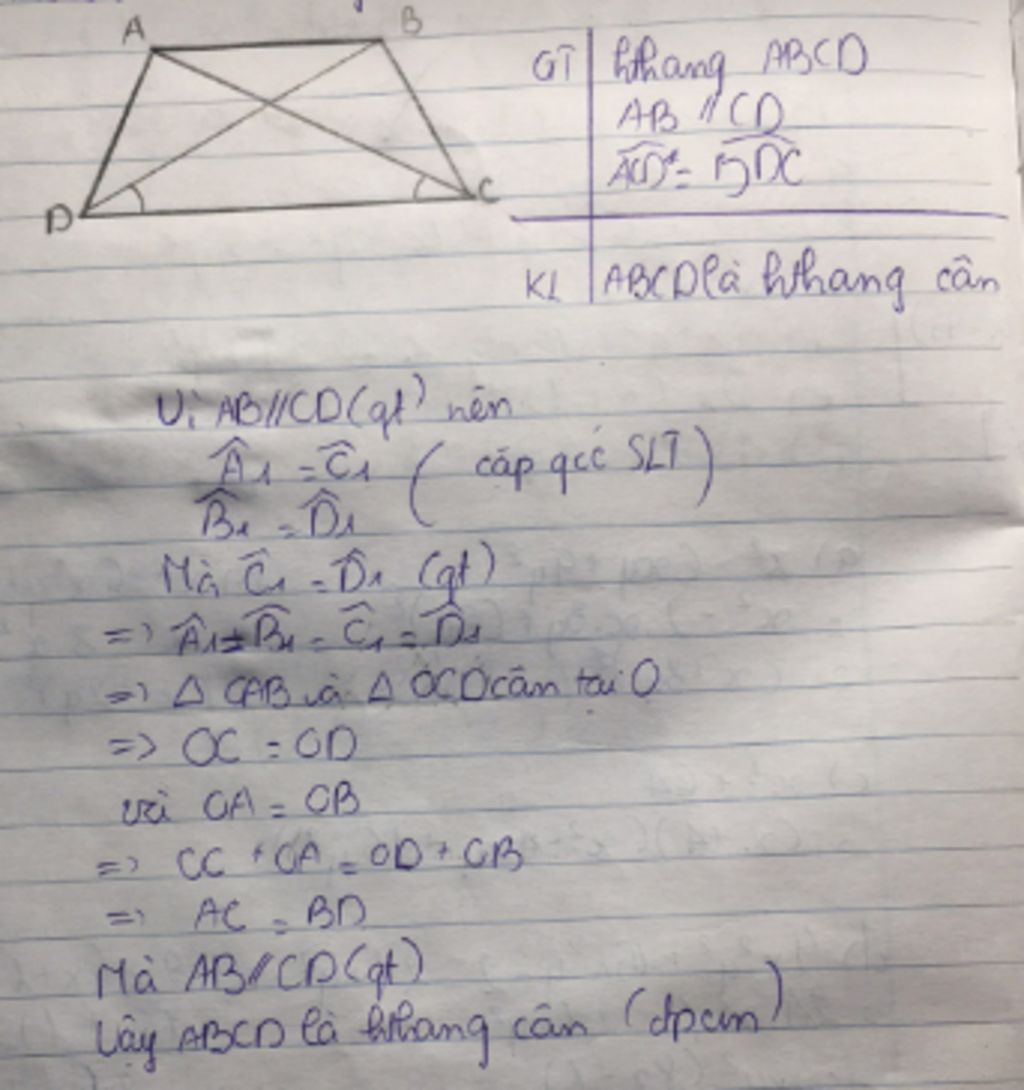 A B
D C
GT hthang ABCD
AB // CD
ACD = BDC
KL ABCD là hthang cân
Vì AB//CD(gt) nên
Â1 = Ĉ1 ( cặp góc SLT )
B̂1 = D̂1
Mà Ĉ1 = D̂1 (gt)
=> Â1 = B̂1 = Ĉ1 = D̂1
=> Δ OAB và Δ OCD cân tại O
=> OC = OD
và OA = OB
=> OC + OA = OD + OB
=> AC = BD
Mà AB//CD(gt)
Vậy ABCD là hthang cân (đpcm)